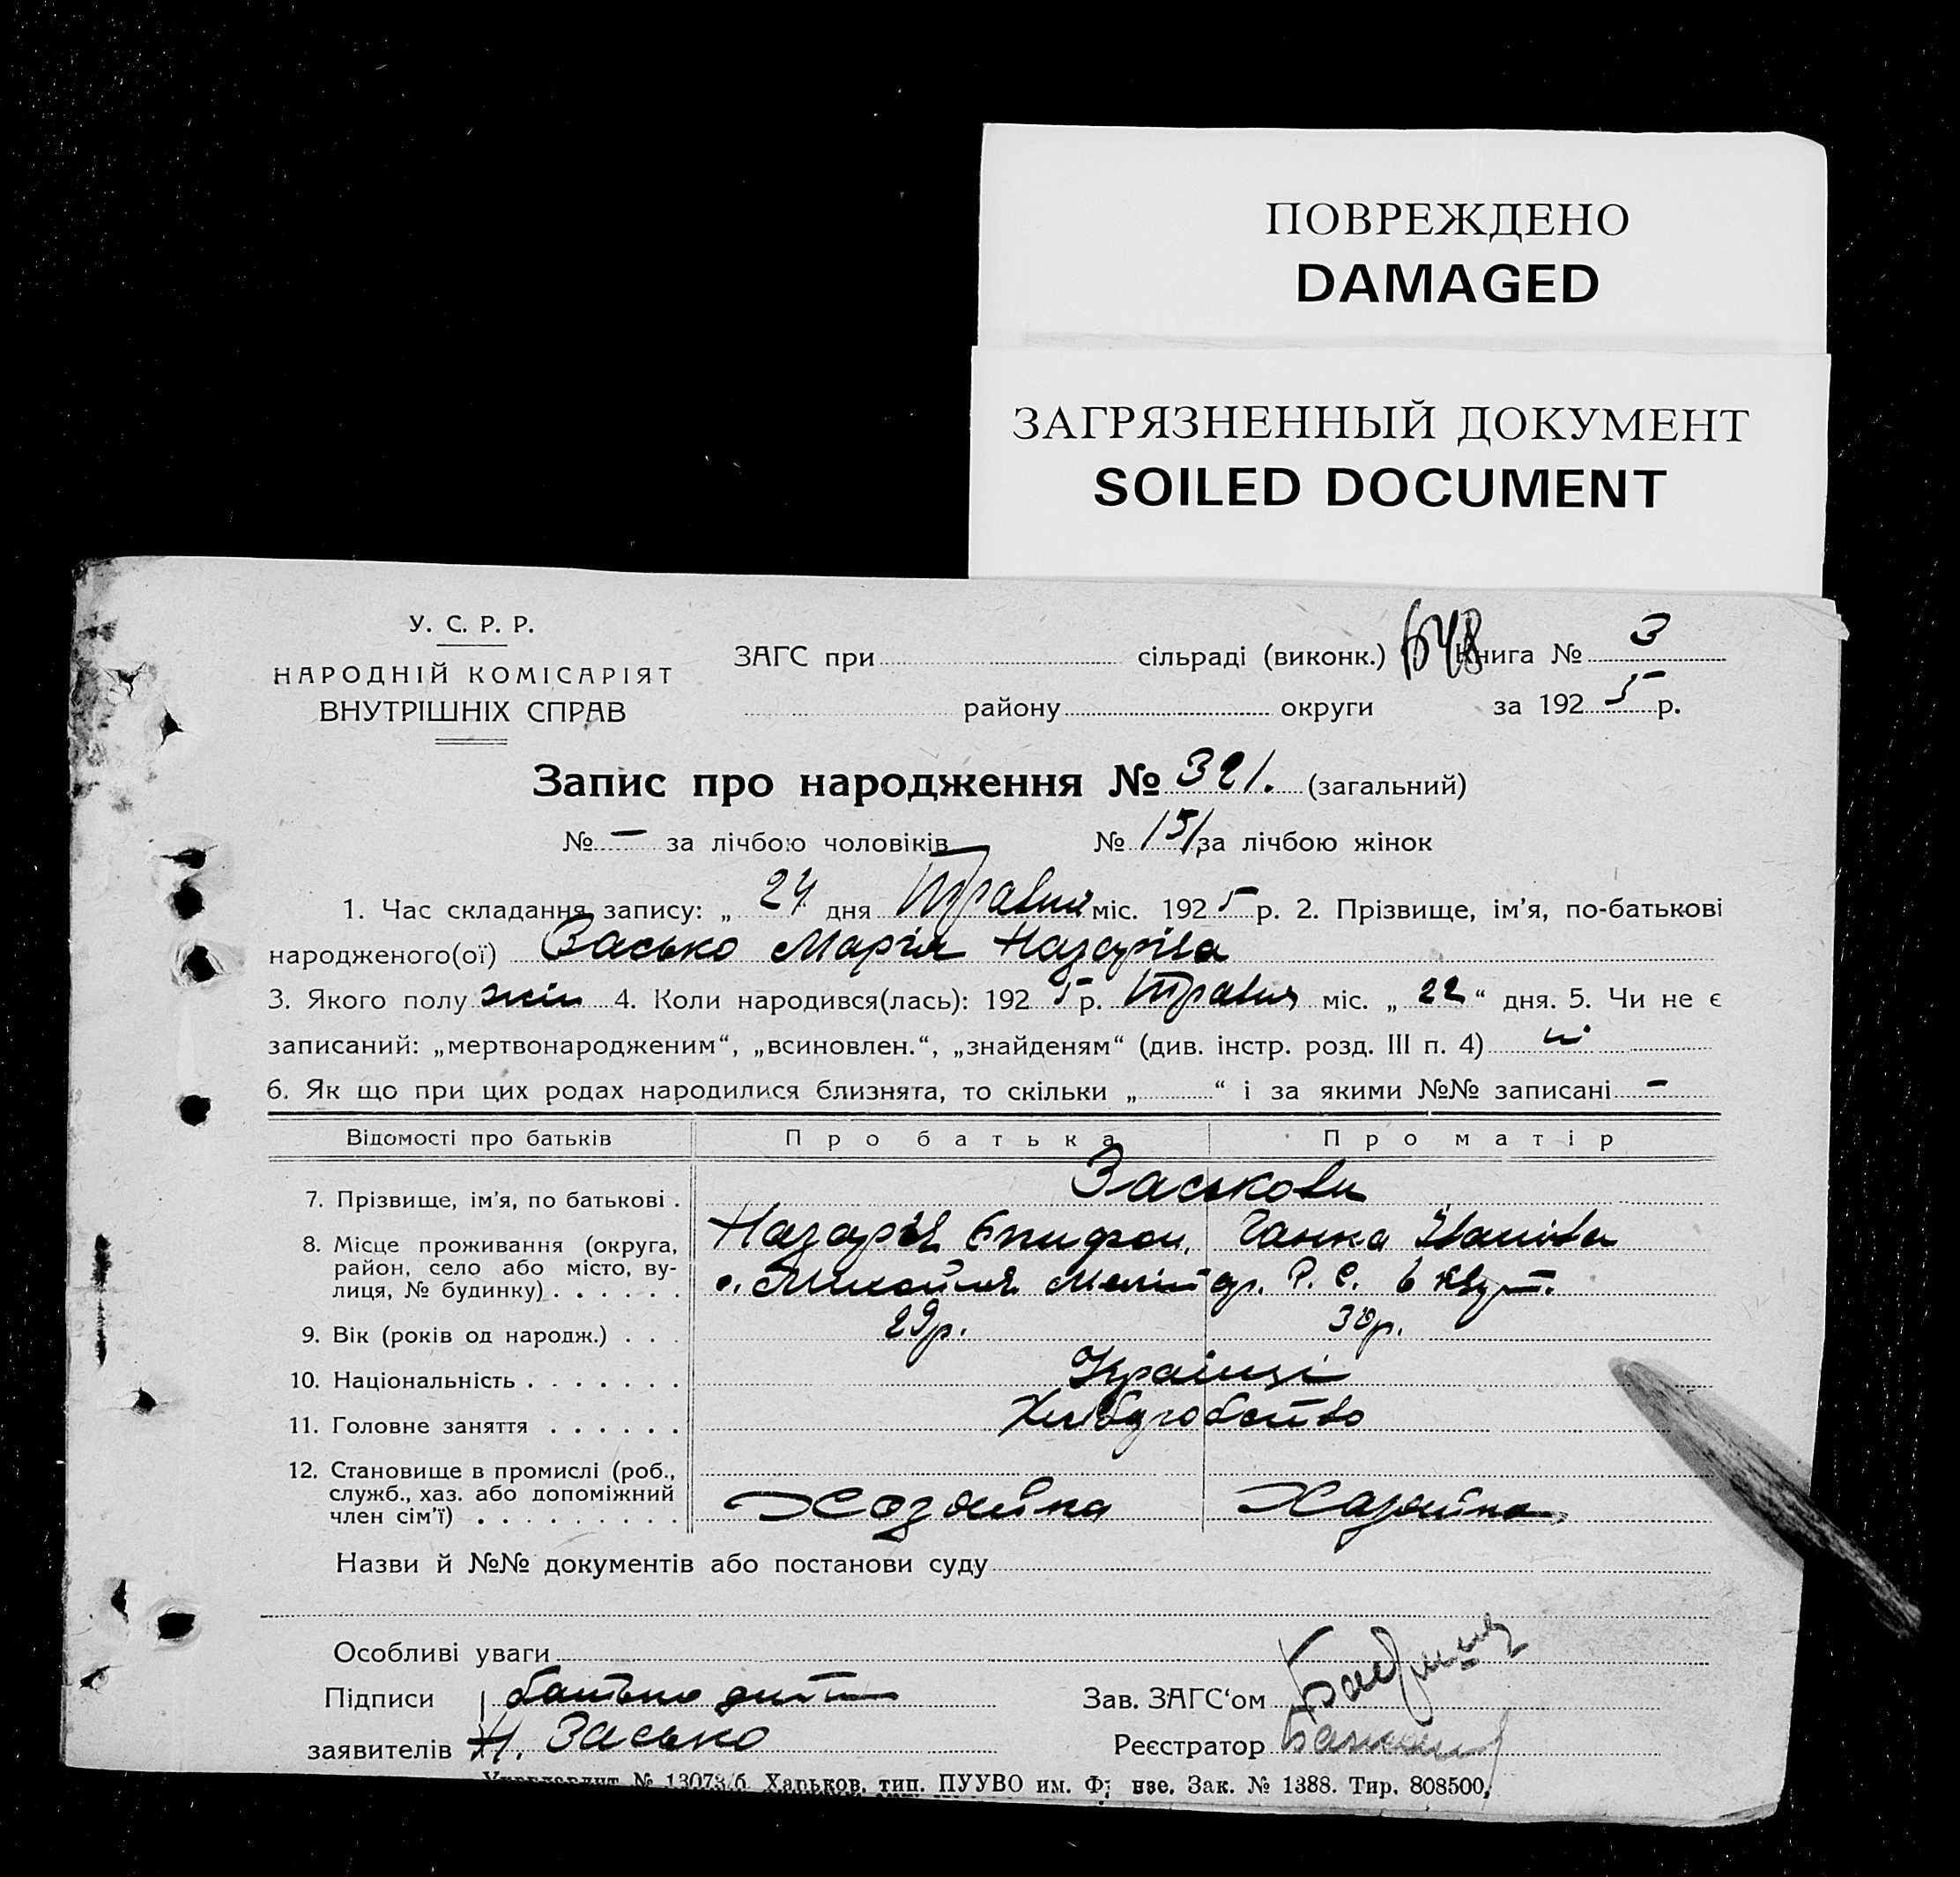 ПОВРЕЖДЕНО
DAMAGED
ЗАГРЯЗНЕННЫЙ ДОКУМЕНТ
SOILED DOCUMENT
У. С. Р. Р.
НАРОДНІЙ КОМІСАРІЯТ
ВНУТРІШНІХ СПРАВ
ЗАГС при сільраді (виконк.) Книга № 3
648
району округи за 1925 р.
Запис про народження № 321. (загальний)
№ — за лічбою чоловіків № 151 за лічбою жінок
1. Час складання запису: „ 24 дня Травня міс. 1925 р. 2. Прізвище, ім'я, по-батькові
народженого(ої) Засько Марія Назарівна
3. Якого полу жін 4. Коли народився(лась): 1925 р. Травня міс. „ 22 “ дня. 5. Чи не є
записаний: „мертвонародженим“, „всиновлен.“, „знайденям“ (див. інстр. розд. III п. 4) ні
6. Як що при цих родах народилися близнята, то скільки „ “ і за якими №№ записані —
Відомості про батьків Про батька Про матір
7. Прізвище, ім'я, по батькові . Заськови
8. Місце проживання (округа, район, село або місто, вулиця, № будинку) . . . . . . Назарій Епифон. Ганна Іванівна
с. Р. С.
9. Вік (років од народж.) . . . 29 р. 30 р.
10. Національність . . . . . . . Україньці
11. Головне заняття . . . . . . Хліборобство
12. Становище в промислі (роб., служб., хаз. або допоміжний член сім'ї) . . . . . . . . . Хозяйка Хазяйка
Назви й №№ документів або постанови суду
Особливі уваги
Підписи батько дити Зав. ЗАГС'ом
заявителів Н. Засько Реєстратор
№ 13073/б Харьков, тип. ПУУВО им. Ф нзе. Зак. № 1388. Тир. 808500,